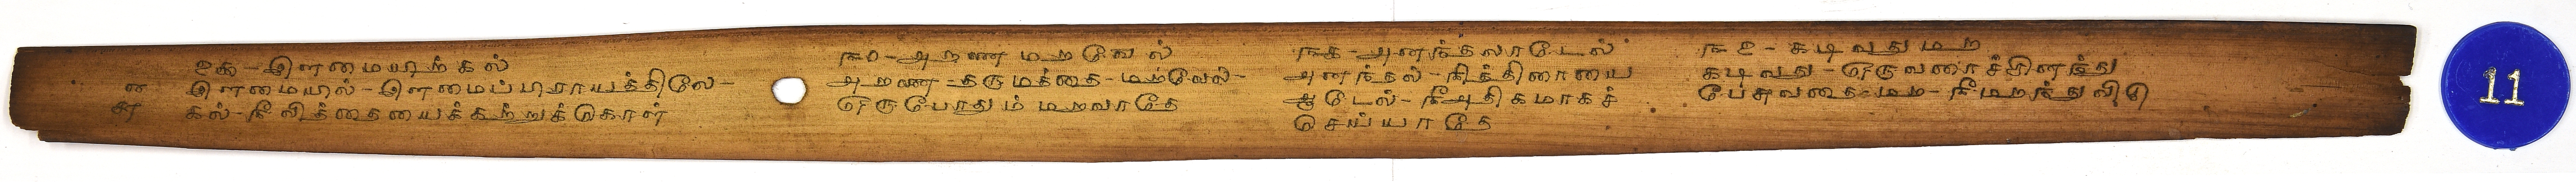 ௨௯-இளமையிற்கல்
இளமையில்-இளமைப்பிராயத்திலே-
கல்-நீவித்தையைக்கற்றுக்கொள்
௩௦-அறனை மறவேல்
அறனை-தருமத்தை-மறவேல்-
ஒருபோதும் மறவாதே
௩௧-அனந்தலாடேல்
அனந்தல்-நித்திரையை
ஆடேல்-நீஅதிகமாகச்
செய்யாதே
௩௨-கடிவதுமற
கடிவது-ஒருவரைச்சினந்து
பேசுவதை-மற-நீமறந்துவிடு
11